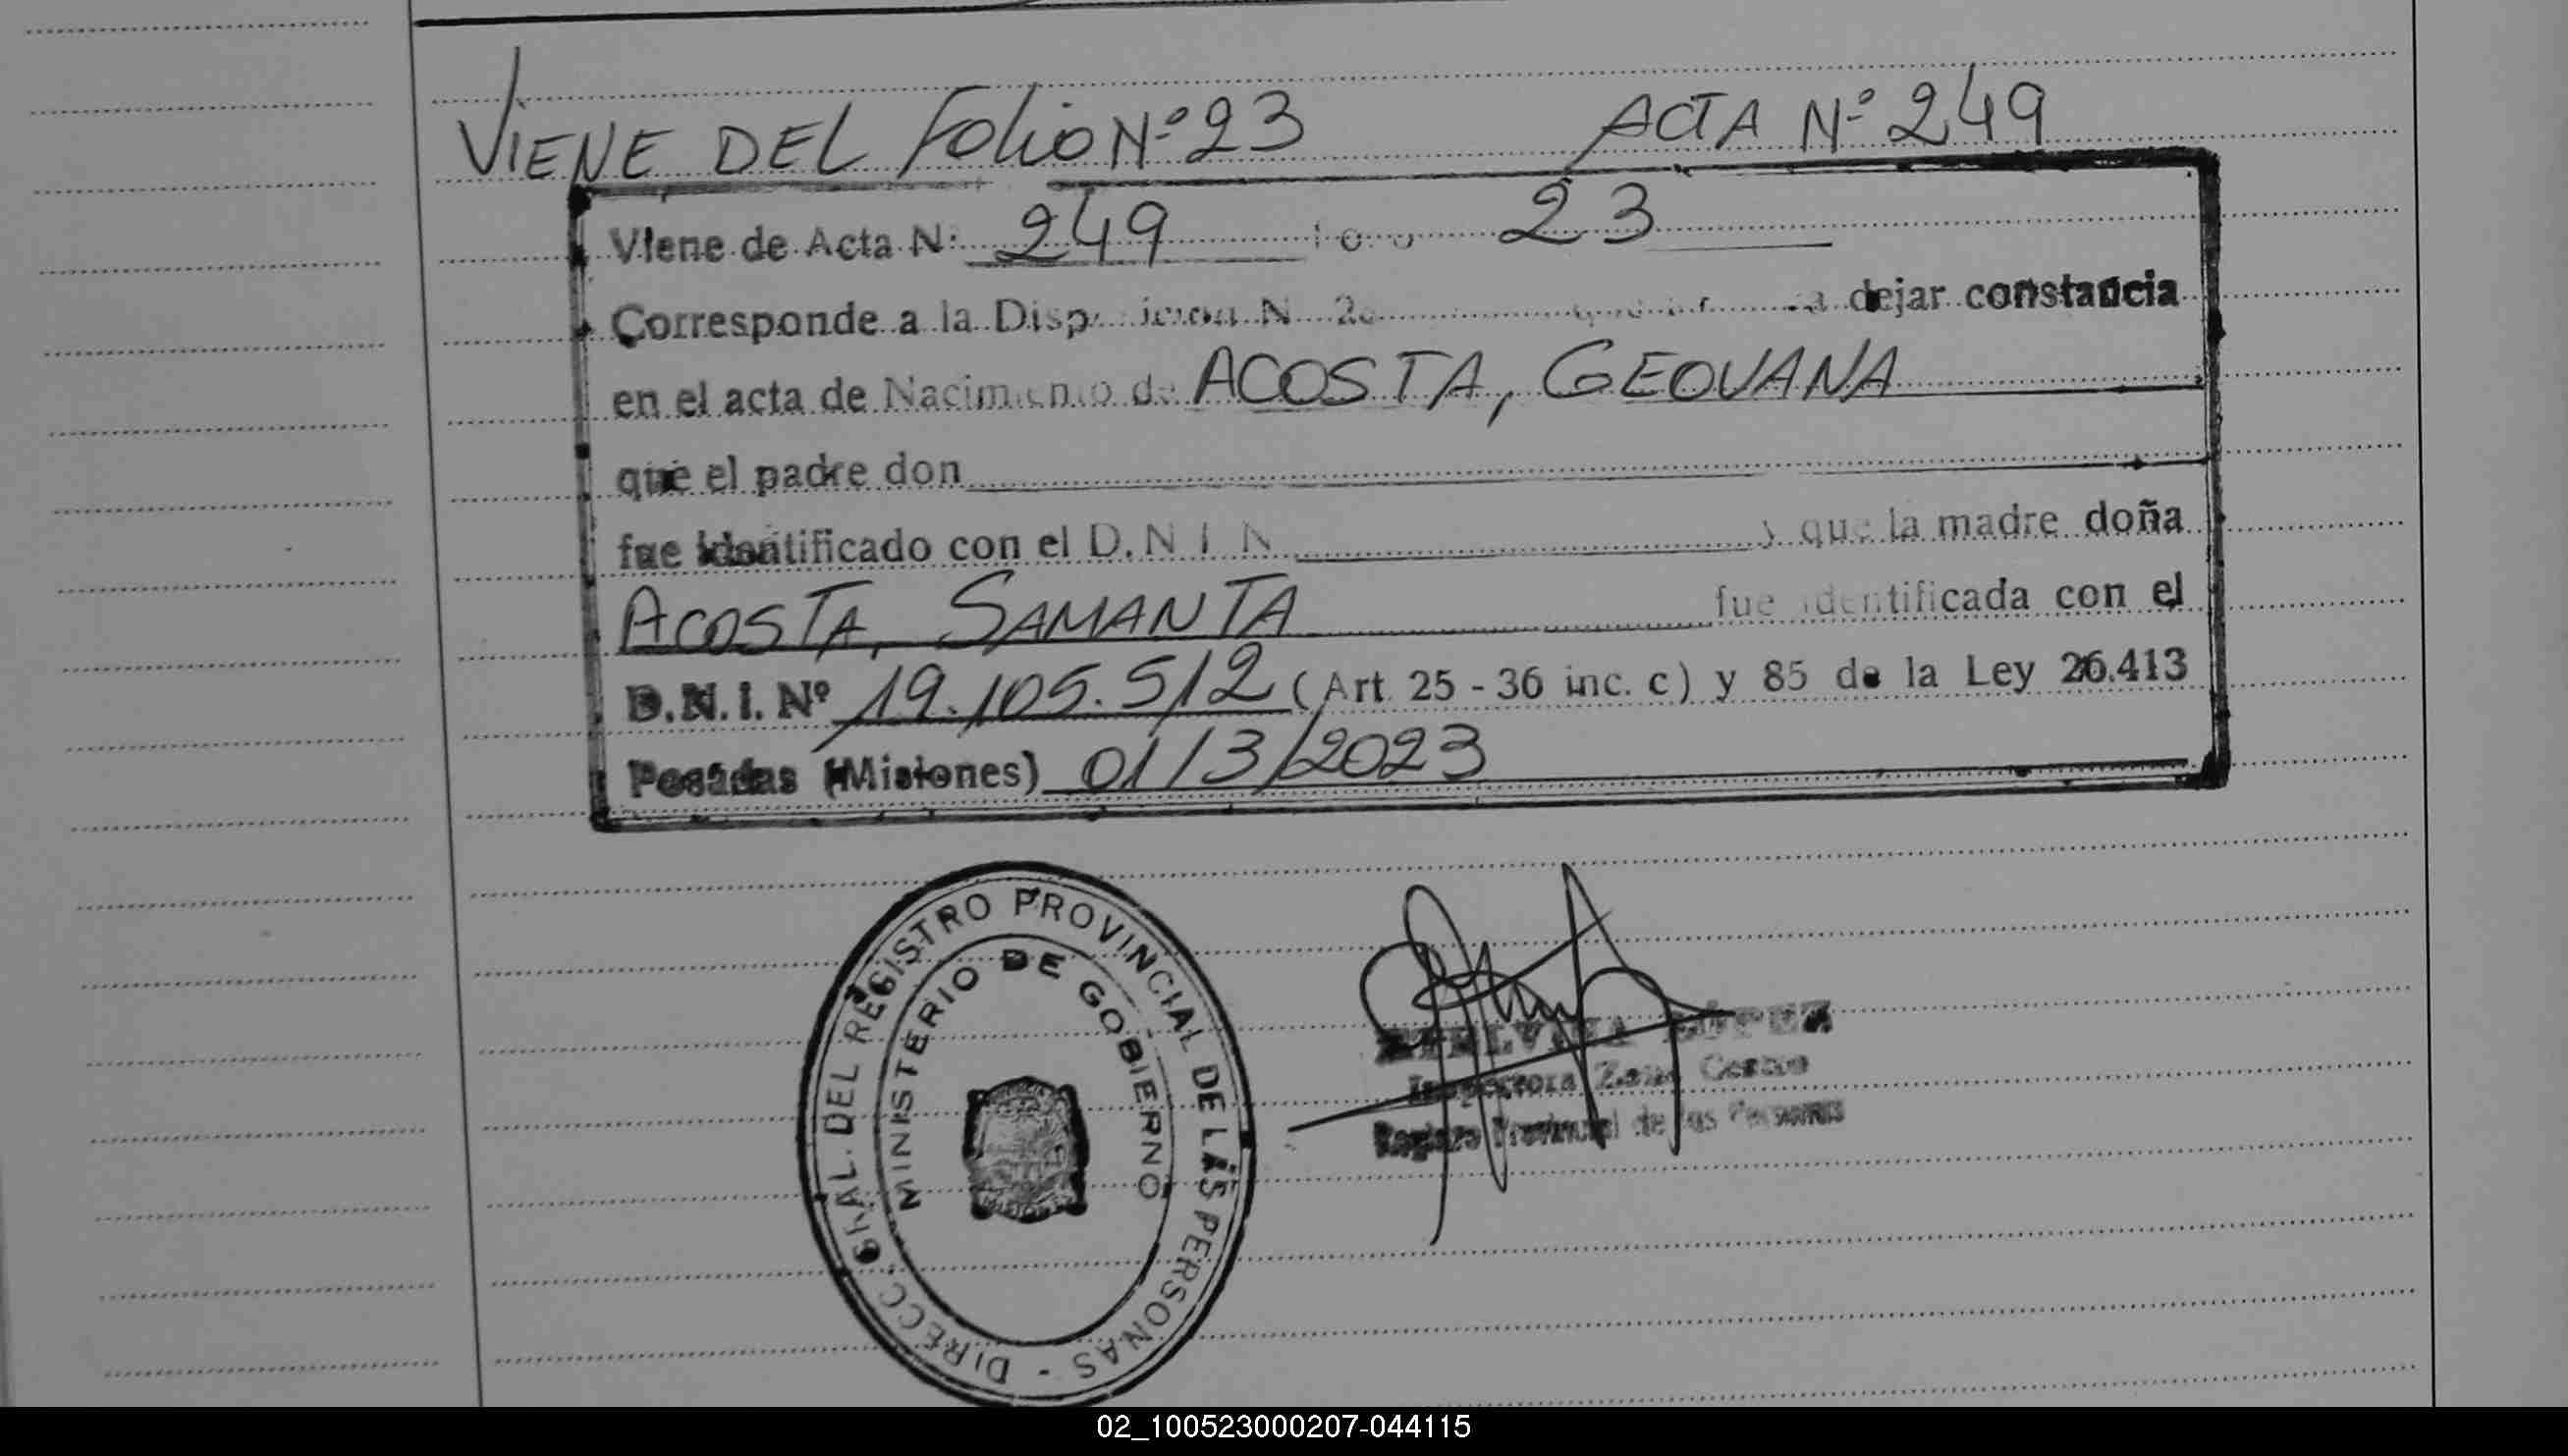 VIENE DEL FOLIO Nº 23 ACTA Nº 249
Viene de Acta N: 249 23
Corresponde a la N dejar constancia
en el acta de Nacimiento de ACOSTA, GEOVANA
que el padre don
fue identificado con el D.N.I N y que la madre doña
ACOSTA, SAMANTA fue identificada con el
D.N.I. Nº 19.105.512 (Art. 25 - 36 inc. c) y 85 de la Ley 26.413
Posadas (Misiones) 01/3/2023
DIRECC. GRAL. DEL REGISTRO PROVINCIAL DE LAS PERSONAS -
MINISTERIO DE GOBIERNO
Inspectora Zona
Registro Provincial de las Personas
02_100523000207-044115